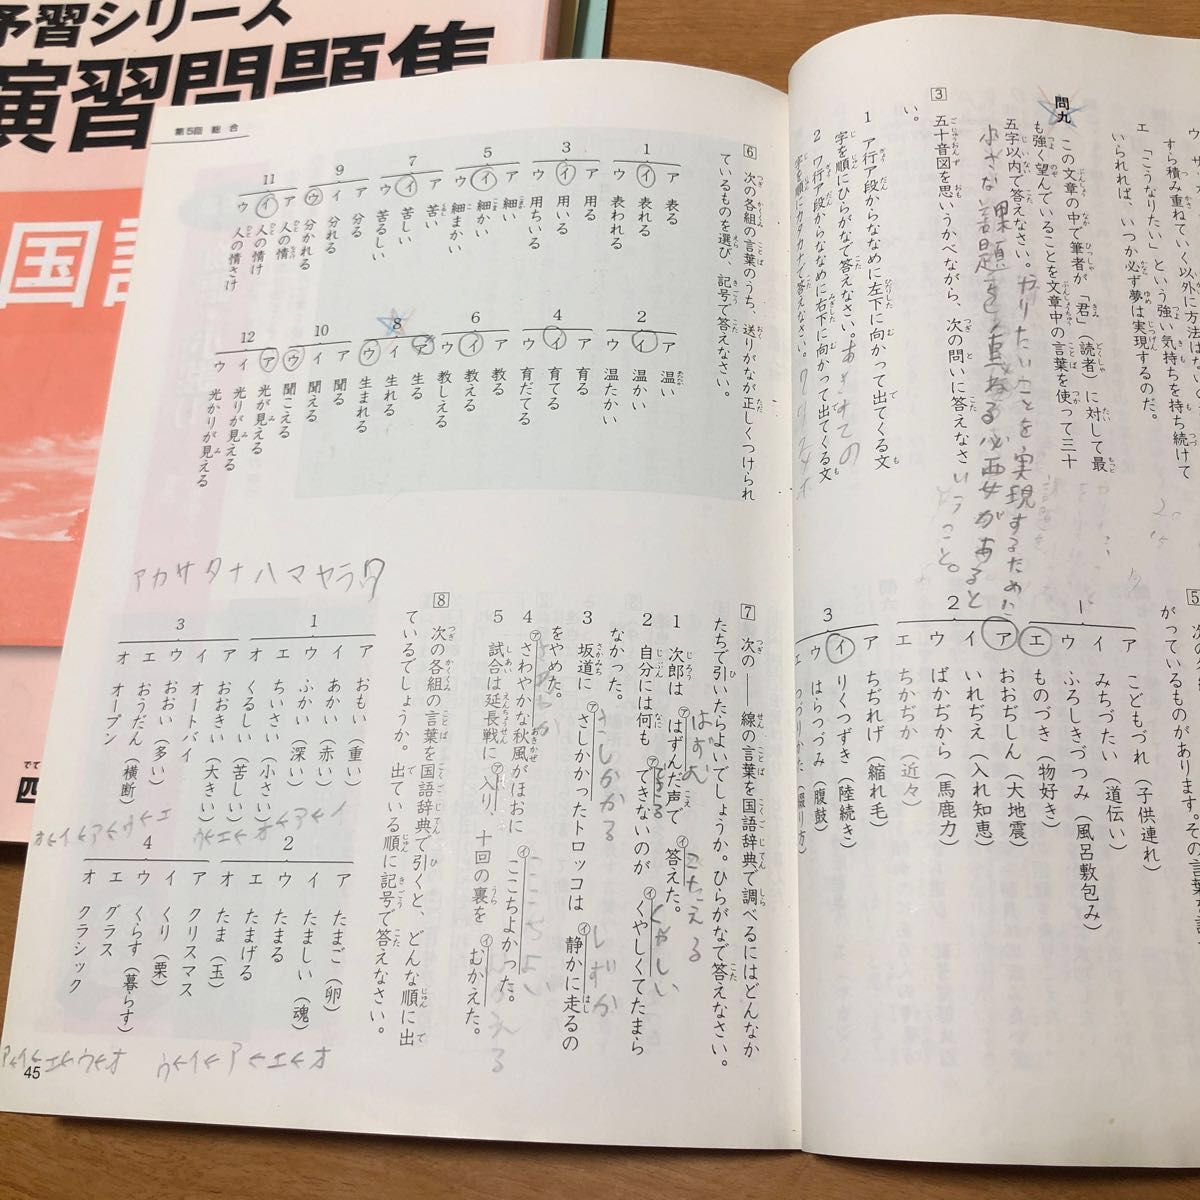 予習シリーズ
演習問題集
国語
第5回 総合
エ 「こうなりたい」という強い気持ちを持ち続けて
いられれば、いつか必ず夢は実現するのだ。
問九 この文章の中で筆者が「君」(読者)に対して最
も強く望んでいることを文章中の言葉を使って三十
五字以内で答えなさい。
やりたいことを実現するために
小さな課題を重ねる必要があると
いうこと。
3 五十音図を思いうかべながら、次の問いに答えなさ
い。
1 ア行ア段からななめに左下に向かって出てくる文
字を順にひらがなで答えなさい。
2 ワ行ア段からななめに右下に向かって出てくる文
字を順にカタカナで答えなさい。
5
ア こどもづれ(子供連れ)
イ みちづたい(道伝い)
ウ ふろしきづつみ(風呂敷包み)
エ ものづき(物好き)
2
ア おおぢしん(大地震)
イ いれぢえ(入れ知恵)
ウ ばかぢから(馬鹿力)
エ ちかぢか(近々)
3
ア ちぢれげ(縮れ毛)
イ りくつずき(陸続き)
ウ はらつづみ(腹鼓)
6 次の各組の言葉のうち、送りがなが正しくつけられ
ているものを選び、記号で答えなさい。
1
ア 表る
イ 表れる
ウ 表われる
2
ア 温い
イ 温かい
ウ 温たかい
3
ア 用る
イ 用いる
ウ 用ちいる
4
ア 育る
イ 育てる
ウ 育だてる
5
ア 細い
イ 細かい
ウ 細まかい
6
ア 教る
イ 教える
ウ 教しえる
7
ア 苦い
イ 苦しい
ウ 苦るしい
8
ア 生る
イ 生れる
ウ 生まれる
9
ア 分る
イ 分れる
ウ 分かれる
10
ア 聞る
イ 聞える
ウ 聞こえる
11
ア 人の情
イ 人の情け
ウ 人の情さけ
12
ア 光が見える
イ 光りが見える
ウ 光かりが見える
アカサタナハマヤラワ
7 次の――線の言葉を国語辞典で調べるにはどんなか
たちで引いたらよいでしょうか。ひらがなで答えなさい。
1 次郎は㋐はずんだ声で㋑答えた。
はずむ
こたえる
2 自分には何も㋐できないのが㋑くやしくてたまら
なかった。
できる
くやしい
3 坂道に㋐さしかかったトロッコは㋑静かに走るの
をやめた。
さしかかる
しずか
4 ㋐さわやかな秋風がほおに㋑ここちよかった。
ここちよい
5 試合は延長戦に㋐入り十回の裏を㋑むかえた。
8 次の各組の言葉を国語辞典で引くと、どんな順に出
ているでしょうか。出ている順に記号で答えなさい。
1
ア おもい(重い)
イ あかい(赤い)
ウ ふかい(深い)
エ ちいさい(小さい)
オ くるしい(苦しい)
2
ア たまご(卵)
イ たましい(魂)
ウ たまる
エ たまげる
オ たま(玉)
3
ア おおきい(大きい)
イ オートバイ
ウ おおい(多い)
エ おうだん(横断)
オ オープン
4
ア クリスマス
イ くり(栗)
ウ くらす(暮らす)
エ グラス
オ クラシック
オ←イ←ア←ウ←エ
ウ←エ←オ←ア←イ
ア←イ←エ←ウ←オ
ウ←イ←ア←エ←オ
45